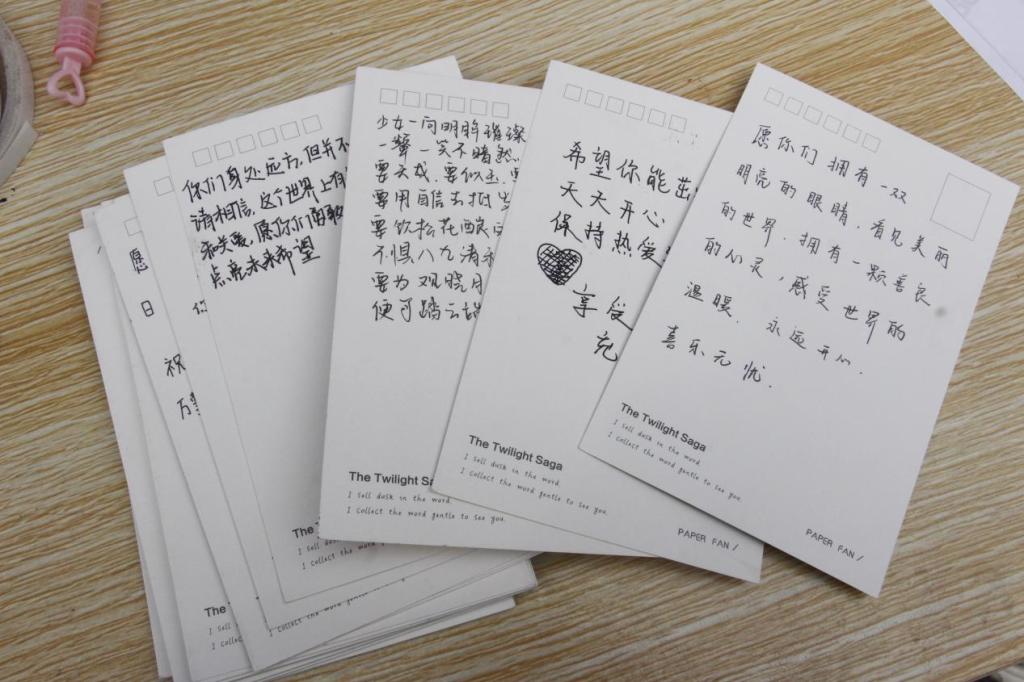 愿
日
祝
万
The T
I sell
I collect
你
I collect the word
你们身处远方,但并不
请相信,这个世界上有
和咲爱,愿你们勇敢
点亮未来希望
The Tw
I sell dusk
I collect the word gentle
少女一向明眸璀璨
一颦一笑不黯然
要用自信去抵
要饮松花酿
不惧八九清
要为观晓月
便可踏云
The Twilight Saga
I sell dusk in the word.
I collect the word gentle to see you.
希望你能
天天开心
保持热爱
享受
充
The Twilight Saga
I sell dusk in the word.
I collect the word gentle to see you.
PAPER FAN /
愿你们 拥有 一双
明亮的眼睛,看见美丽
的世界,拥有一颗善良
的心灵,感受世界的
温暖,永远开心.
喜乐无忧.
The Twilight Saga
I sell dusk in the word.
I collect the word gentle to see you.
PAPER FAN /